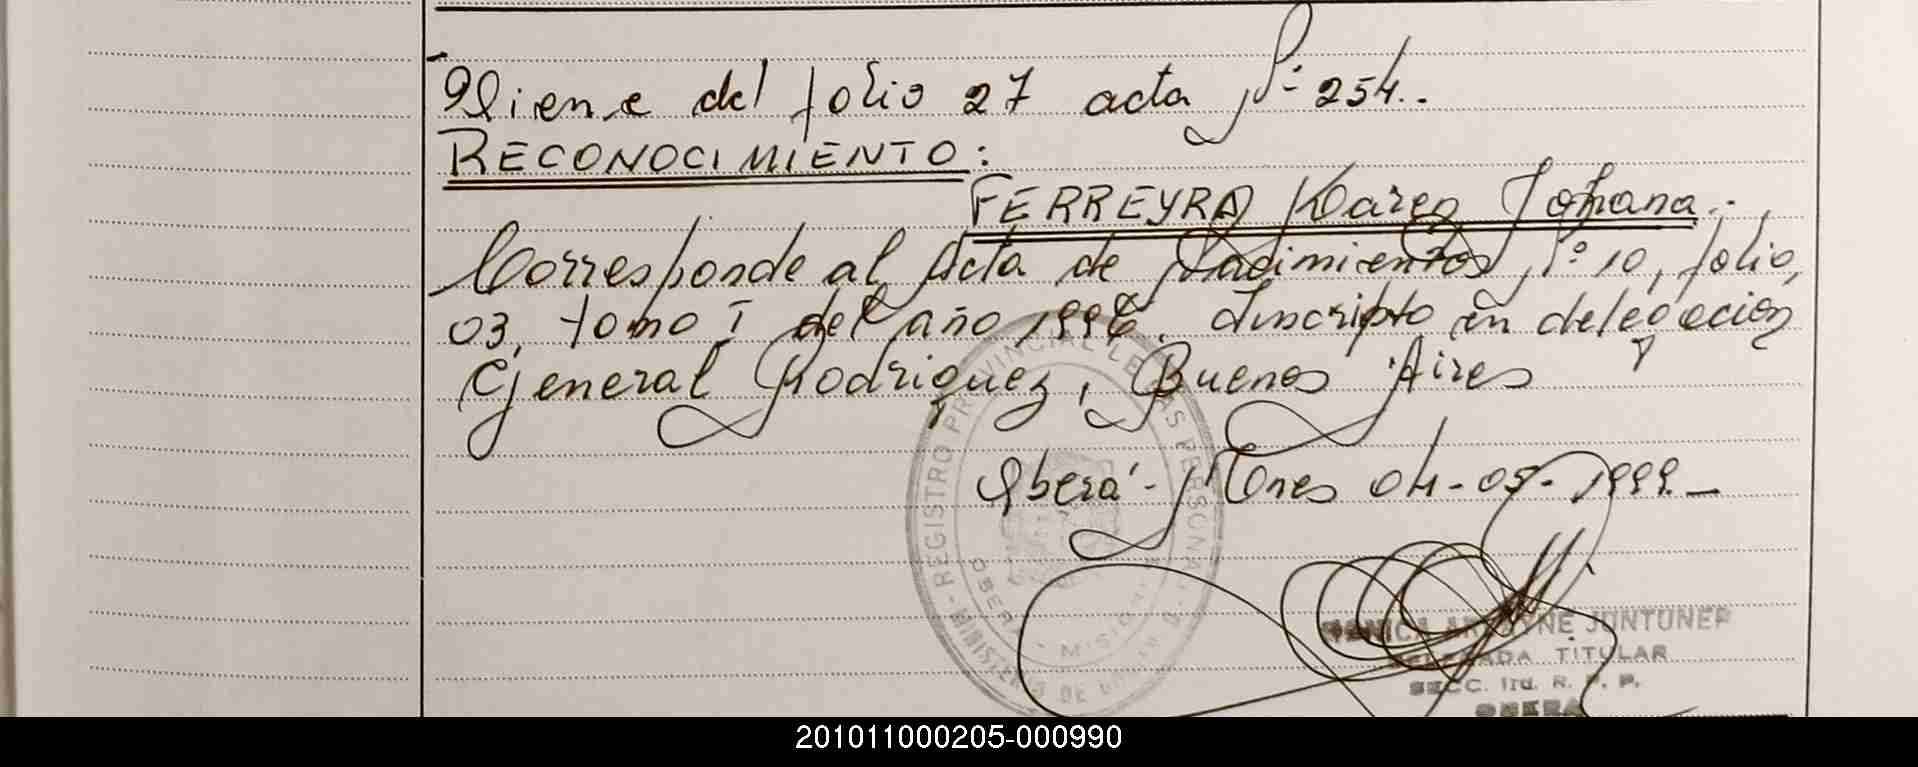 Viene del folio 27 acta Nº 254..
RECONOCIMIENTO:
FERREYRA Karen Johana..
Corresponde al Acta de Nacimientos Nº 10, folio,
03, tomo I del año 1996. Inscripto en delegación
General Rodriguez, Buenos Aires
Oberá - Mnes 04-05-1999.-
REGISTRO PROVINCIAL DE LAS PERSONAS
OBERA - MISIONES
MINISTERIO DE
JUNTUNEN
DELEGADA TITULAR
SECC. R. P. P.
OBERA
201011000205-000990